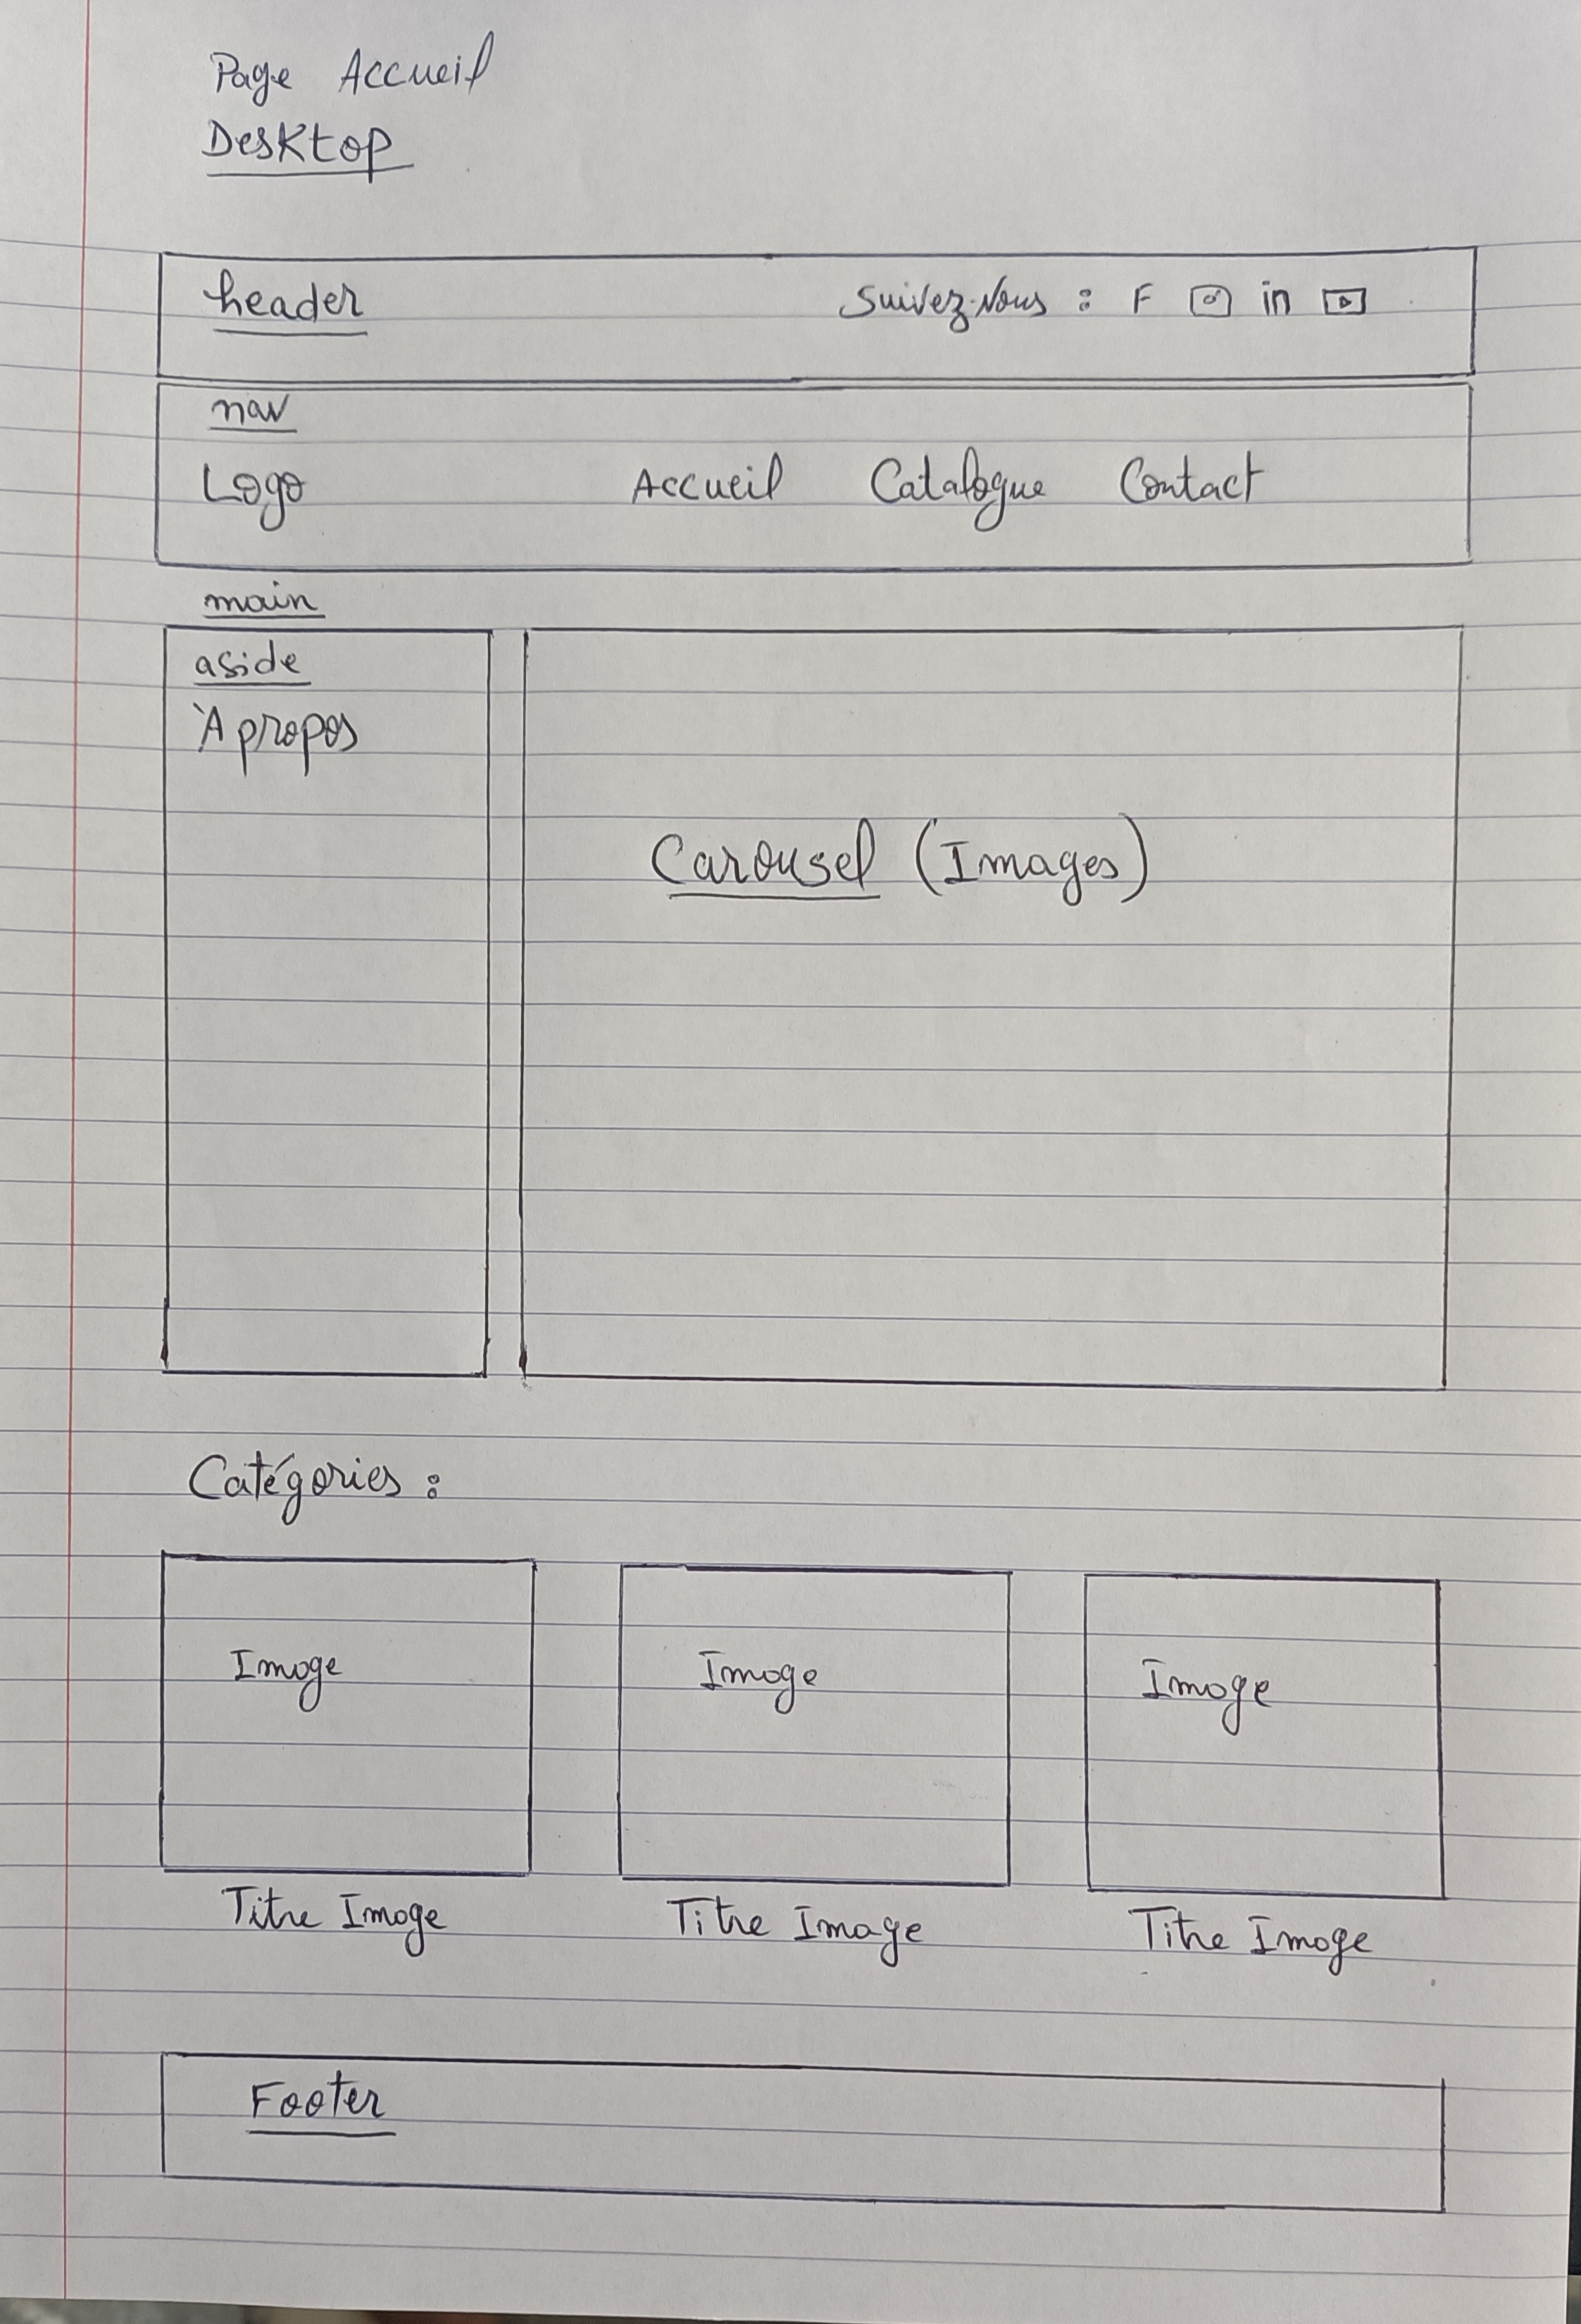 Page Accueil
Desktop
header
Suivez-Nous : F in
nav
Logo Accueil Catalogue Contact
main
aside
À propos
Carousel (Images)
Catégories :
Image Image Image
Titre Image Titre Image Titre Image
Footer